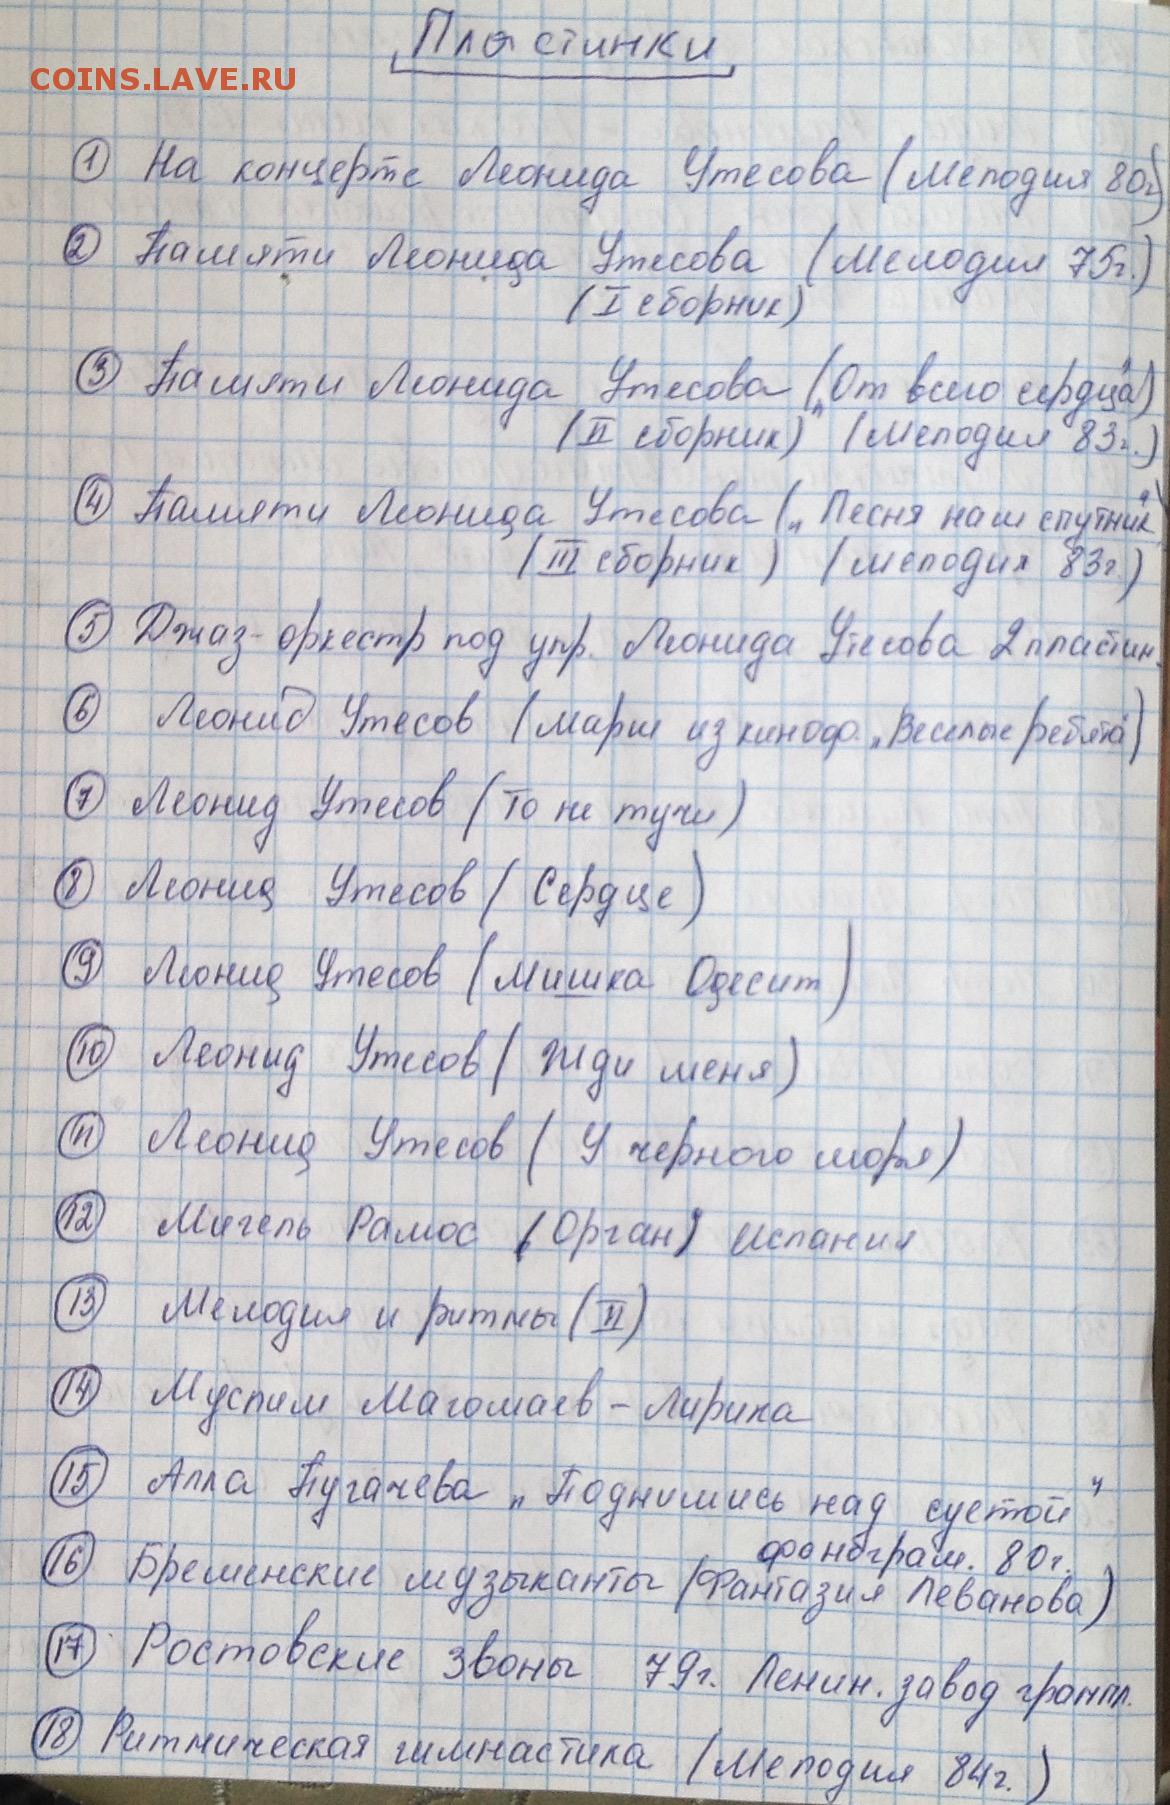 Пластинки
COINS.LAVE.RU
1 На концерте Леонида Утесова (Мелодия 80г)
2 Памяти Леонида Утесова (Мелодия 75г.)
(I сборник)
3 Памяти Леонида Утесова („От всего сердца")
(II сборник) (Мелодия 83г.)
4 Памяти Леонида Утесова („Песня наш спутник"
(III сборник) (Мелодия 83г.)
5 Джаз-оркестр под упр. Леонида Утесова 2 пластин.
6 Леонид Утесов (Марш из киноф. „Веселые ребята")
7 Леонид Утесов (То не тучи)
8 Леонид Утесов (Сердце)
9 Леонид Утесов (Мишка Одесит)
10 Леонид Утесов (Жди меня)
11 Леонид Утесов (У черного моря)
12 Мигель Рамос (Орган) Испания
13 Мелодия и ритмы (II)
14 Муслим Магомаев - Лирика
15 Алла Пугачева „Поднимись над суетой"
фонограм. 80г.
16 Бременские музыканты (Фантазия Леванова)
17 Ростовские звоны 79г. Ленин. завод грампл.
18 Ритмическая гимнастика (Мелодия 84г.)